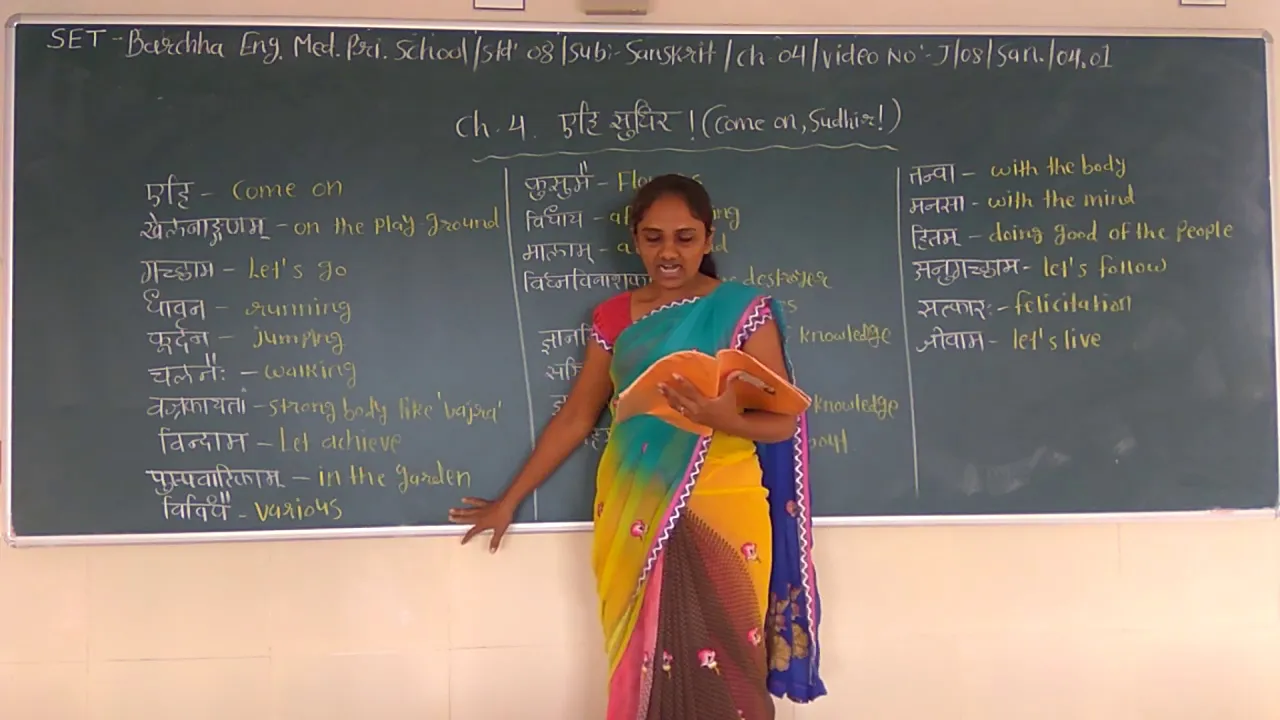 SET - Barchha Eng. Med. Pri. School / Std' 08 / Sub:- Sanskrit / Ch 04 / Video No'- J / 08 / San. / 04.01
Ch. 4. एहि सुधिर ! (Come on, Sudhir!)
एहि - Come on
खेलनाङ्गणम् - on the play ground
गच्छाम - Let's go
धावन - running
कूर्दन - jumping
चलनैः - walking
वज्रकायतां - strong body like 'vajra'
विन्दाम - Let achieve
पुष्पवाटिकाम् - in the garden
विविधै - various
कुसुमै -
विधाय -
मालाम् -
destroyer
knowledge
knowledge
तन्वा - with the body
मनसा - with the mind
हितम् - doing good of the people
अनुगच्छाम - let's follow
सत्कारः - felicitation
जीवाम - let's live